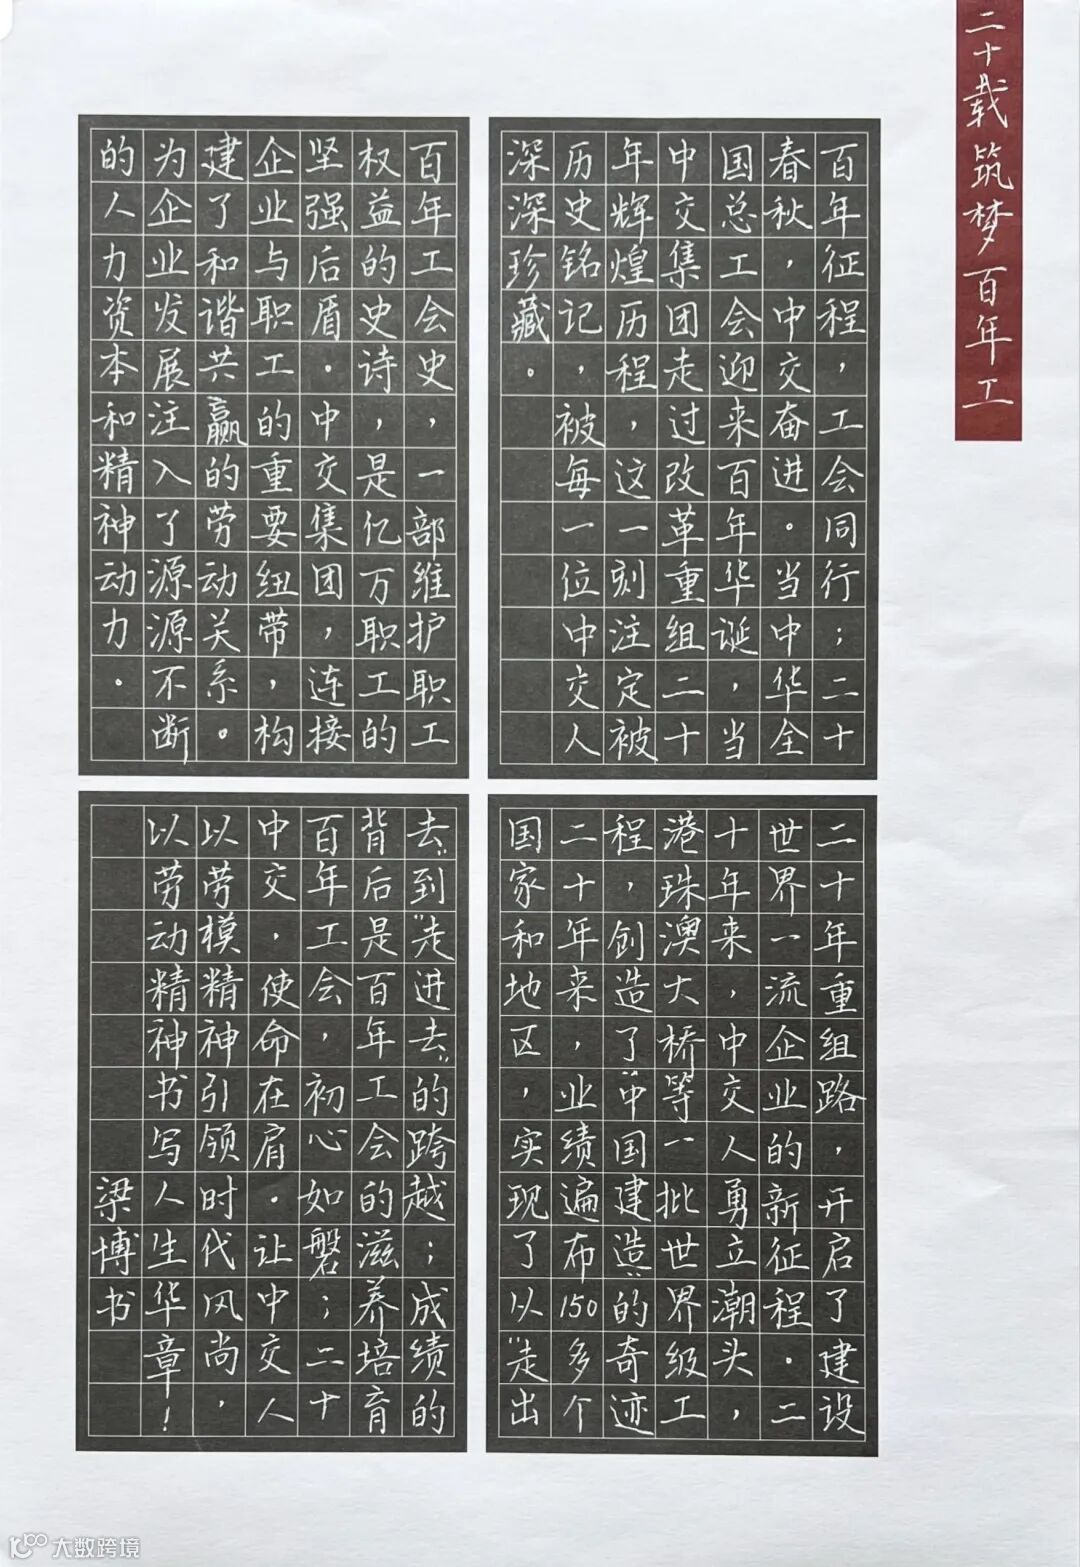 二十载筑梦百年工
百年征程，工会同行；二十
春秋，中交奋进。当中华全
国总工会迎来百年华诞，当
中交集团走过改革重组二十
年辉煌历程，这一刻注定被
历史铭记，被每一位中交人
深深珍藏。
百年工会史，一部维护职工
权益的史诗，是亿万职工的
坚强后盾.中交集团，连接
企业与职工的重要纽带，构
建了和谐共赢的劳动关系。
为企业发展注入了源源不断
的人力资本和精神动力。
二十年重组路，开启了建设
世界一流企业的新征程.二
十年来，中交人勇立潮头，
港珠澳大桥等一批世界级工
程，创造了"中国建造"的奇迹
二十年来，业绩遍布150多个
国家和地区，实现了以"走出
去"到"走进去"的跨越；成绩的
背后是百年工会的滋养培育
百年工会，初心如磐；二十
中交，使命在肩.让中交人
以劳模精神引领时代风尚，
以劳动精神书写人生华章！
梁博书
大数跨境